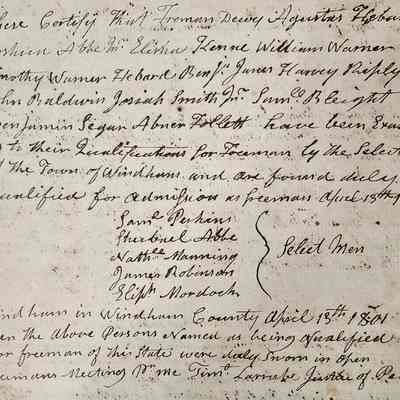 here Certify that Freeman Dewey Agustus Heba
Joshua Abbe Jnr. Elisha Kenne William Warner
imothy Warner Hebard Benjn. James Harvey Riply
hn Baldwin Josiah Smith Jnr. Saml. Bleight
enjamin Segar Abner Follett have been Exa
to their Qualifications for Freeman by the Select
f the Town of Windham and are found duly
ualified for admission as freeman April 13th 1
Saml. Perkins
Shubael Abbe
Nathll. Manning
James Robinson
Eliph Mordock
Select Men
indham in Windham County April 13th 1801
en the Above Persons Named as being qualified
or freeman of this State were duly Sworn in open
emans Meeting Pr. me Timo. Larrabe Justice of Pe